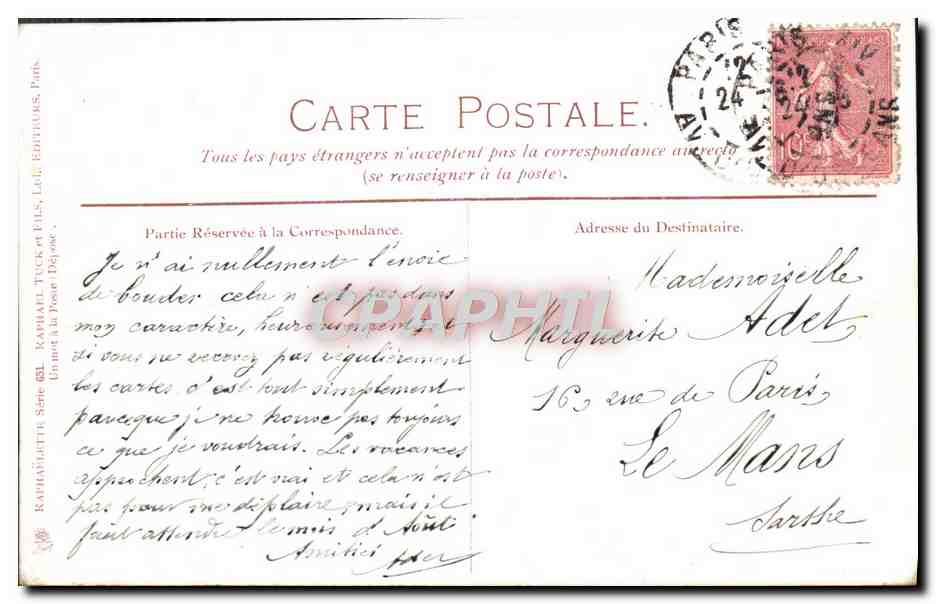 CARTE POSTALE.
Tous les pays étrangers n'acceptent pas la correspondance au recto
(se renseigner à la poste).
Partie Réservée à la Correspondance.
Je n'ai nullement l'envie
de bouder cela n'est pas dans
mon caractère, heureusement, et
si vous ne recevez pas régulièrement
les cartes c'est tout simplement
parceque je ne trouve pas toujours
ce que je voudrais. Les vacances
approchent, c'est vrai et cela n'est
pas pour me déplaire, mais il
faut attendre le mois d'Août
Amitiés
Adresse du Destinataire.
Mademoiselle
Marguerite Adet,
16, rue de Paris,
Le Mans
Sarthe
RAPHAËLETTE Série 651. RAPHAEL TUCK et FILS, Ltd., EDITEURS, Paris.
Un mot à la Poste (Déposé).
PARIS
24
10
CRAPHIL